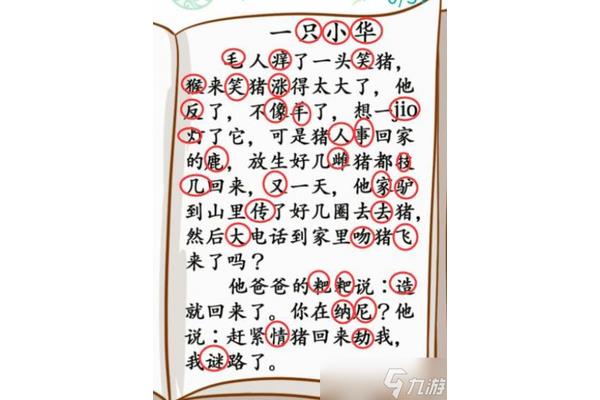 一只小华
毛人痒了一头笑猪,
猴来笑猪涨得太大了, 他
反了, 不像羊了, 想一jio
灯了它, 可是猪人事回家
的鹿, 放生好几雌猪都枝
几回来, 又一天, 他家驴
到山里传了好几圈去去猪,
然后大电话到家里吻猪飞
来了吗?
他爸爸的粑粑说: 造
就回来了。你在纳尼? 他
说: 赶紧情猪回来劫我,
我谜路了。
九游